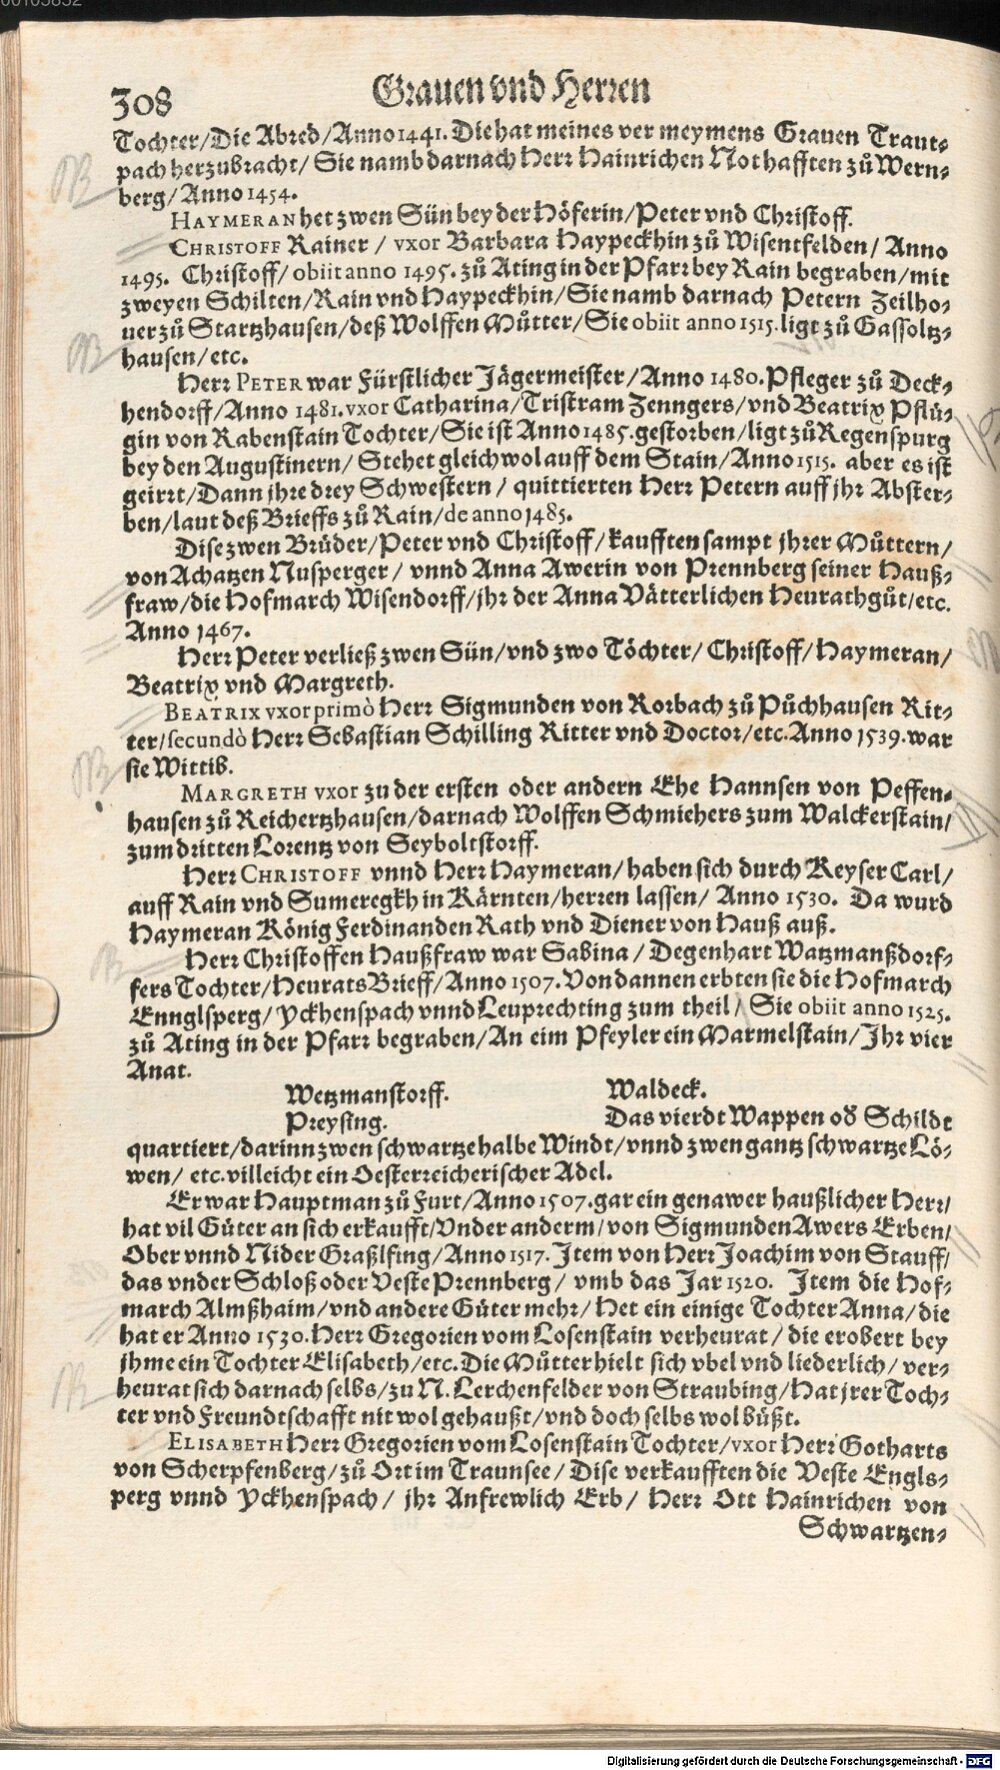 308
Grauen vnd Herren
Tochter/Die Abred/Anno 1441. Die hat meines vermeymens Grauen Traut-
pach herzubracht/ Sie namb darnach Herr Hainrichen Nothafften zů Wern-
berg/ Anno 1454.
HAYMERAN het zwen Sün bey der Höferin/Peter vnd Christoff.
CHRISTOFF Rainer / vxor Barbara Haypeckhin zů Wisentfelden/ Anno
1495. Christoff/ obiit anno 1495. zů Ating in der Pfarr bey Rain begraben/mit
zweyen Schilten/Rain vnd Haypeckhin/Sie namb darnach Petern Zeilho-
uer zů Startzhausen/deß Wolffen Můtter/Sie obiit anno 1515. ligt zů Gassoltz-
hausen/etc.
Herr PETER war Fürstlicher Jägermeister/Anno 1480. Pfleger zů Deck-
hendorff/Anno 1481. vxor Catharina/Tristram Zenngers/vnd Beatrix Pflü-
gin von Rabenstain Tochter/Sie ist Anno 1485. gestorben/ligt zů Regenspurg
bey den Augustinern/ Stehet gleichwol auff dem Stain/Anno 1515. aber es ist
geirrt/Dann jhre drey Schwestern / quittierten Herr Petern auff jhr Abster-
ben/laut deß Brieffs zů Rain/de anno 1485.
Dise zwen Brüder/Peter vnd Christoff/kaufften sampt jhrer Můttern/
von Achatzen Nusperger / vnnd Anna Awerin von Prennberg seiner Hauß-
fraw/die Hofmarch Wisendorff/jhr der Anna Vätterlichen Heurathgůt/etc.
Anno 1467.
Herr Peter verließ zwen Sün/vnd zwo Töchter/ Christoff/Haymeran/
Beatrix vnd Margreth.
BEATRIX vxor primò Herr Sigmunden von Rorbach zů Půchhausen Rit-
ter/secundò Herr Sebastian Schilling Ritter vnd Doctor/etc. Anno 1539. war
sie Wittib.
MARGRETH vxor zu der ersten oder andern Ehe Hannsen von Peffen-
hausen zů Reichertzhausen/darnach Wolffen Schmiehers zum Walckerstain/
zum dritten Lorentz von Seyboltstorff.
Herr CHRISTOFF vnnd Herr Haymeran/haben sich durch Keyser Carl/
auff Rain vnd Sumeregkh in Kärnten/herren lassen/ Anno 1530. Da wurd
Haymeran König Ferdinanden Rath vnd Diener von Hauß auß.
Herr Christoffen Haußfraw war Sabina / Degenhart Watzmanßdorf-
fers Tochter/Heurats Brieff/Anno 1507. Von dannen erbten sie die Hofmarch
Ennglsperg/ Yckhenspach vnnd Leuprechting zum theil/ Sie obiit anno 1525.
zů Ating in der Pfarr begraben/An eim Pfeyler ein Marmelstain/Jhr vier
Anat.
Wetzmanstorff. Waldeck.
Preysing. Das vierdt Wappen od Schildt
quartiert/darinn zwen schwartze halbe Windt/vnnd zwen gantz schwartze Lö-
wen/ etc. villeicht ein Oesterreicherischer Adel.
Er war Hauptman zů Furt/Anno 1507. gar ein genawer haußlicher Herr/
hat vil Güter an sich erkaufft/Vnder anderm/von Sigmunden Awers Erben/
Ober vnnd Nider Graßlfing/Anno 1517. Item von Herr Joachim von Stauff/
das vnder Schloß oder Veste Prennberg/ vmb das Jar 1520. Item die Hof-
march Almßhaim/vnd andere Güter mehr/ Het ein einige Tochter Anna/die
hat er Anno 1530. Herr Gregorien vom Losenstain verheurat/ die erobert bey
jhme ein Tochter Elisabeth/etc. Die Můtter hielt sich vbel vnd liederlich/ ver-
heurat sich darnach selbs/zu N. Lerchenfelder von Straubing/Hat jrer Toch-
ter vnd Freundtschafft nit wol gehaußt/vnd doch selbs wol büßt.
ELISABETH Herr Gregorien vom Losenstain Tochter/vxor Herr Gotharts
von Scherpfenberg/zů Ort im Traunsee/ Dise verkaufften die Veste Engls-
perg vnnd Yckhenspach/ jhr Anfrewlich Erb/ Herr Ott Hainrichen von
Schwartzen-
Digitalisierung gefördert durch die Deutsche Forschungsgemeinschaft - DFG